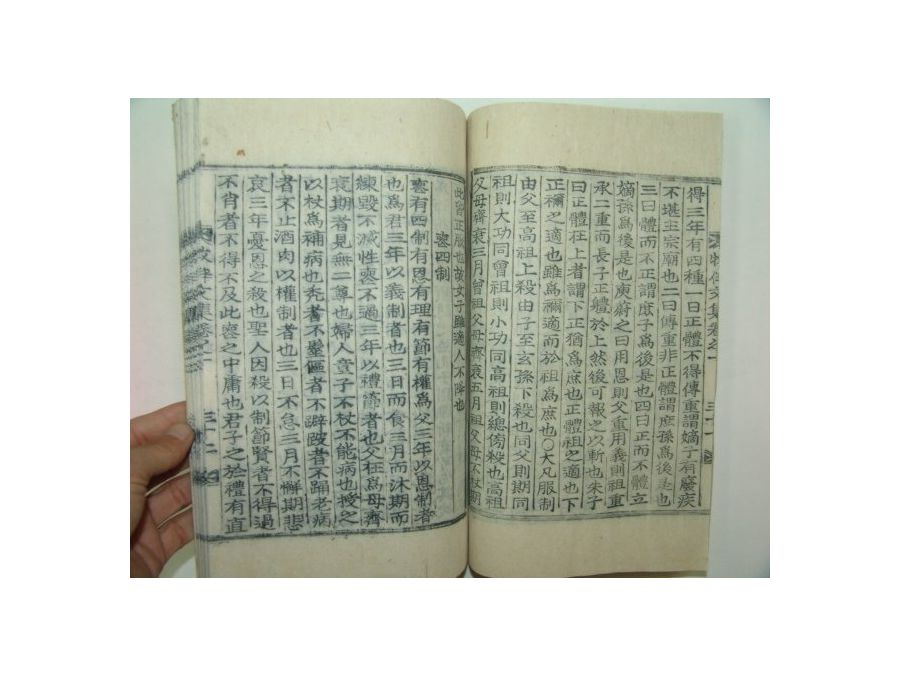 文集卷之一
三十一
得三年有四種一曰正體不得傳重謂嫡子有廢疾
不堪主宗廟也二曰傳重非正體謂庶孫爲後是也
三曰體而不正謂庶子爲後是也四曰正而不體立
嫡孫爲後是也庾蔚之曰用恩則父重用義則祖重
承二重而長子正軆於上然後可報之以斬也朱子
曰正體在上者謂下正猶爲庶也正體祖之適也下
正禰之適也雖爲禰適而於祖爲庶也○大凡服制
由父至高祖上殺由子至玄孫下殺也同父則期同
祖則大功同曾祖則小功同高祖則緦傍殺也高祖
父母齊衰三月曾祖父母齊衰五月祖父母不杖期
此皆正服也故女子雖適人不降也
喪四制
喪有四制有恩有理有節有權爲父三年以恩制者
也爲君三年以義制者也三日而食三月而沐期而
練毁不滅性喪不過三年以禮節者也父在爲母齊
衰期者見無二尊也婦人童子不杖不能病也授之
以杖爲補病也禿者不髽傴者不跛者不踊老病
者不止酒肉以權制者也三日不怠三月不懈期悲
哀三年憂恩之殺也聖人因殺以制節賢者不得過
不肖者不得不及此喪之中庸也君子之於禮有直
文集卷之一
三十二